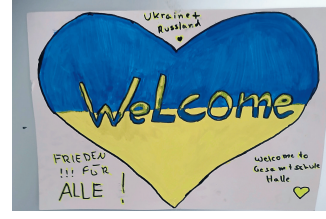 Ukraine +
Russland
Welcome
FRIEDEN
!!! FÜR
ALLE !
Welcome to
Gesamtschule
Halle